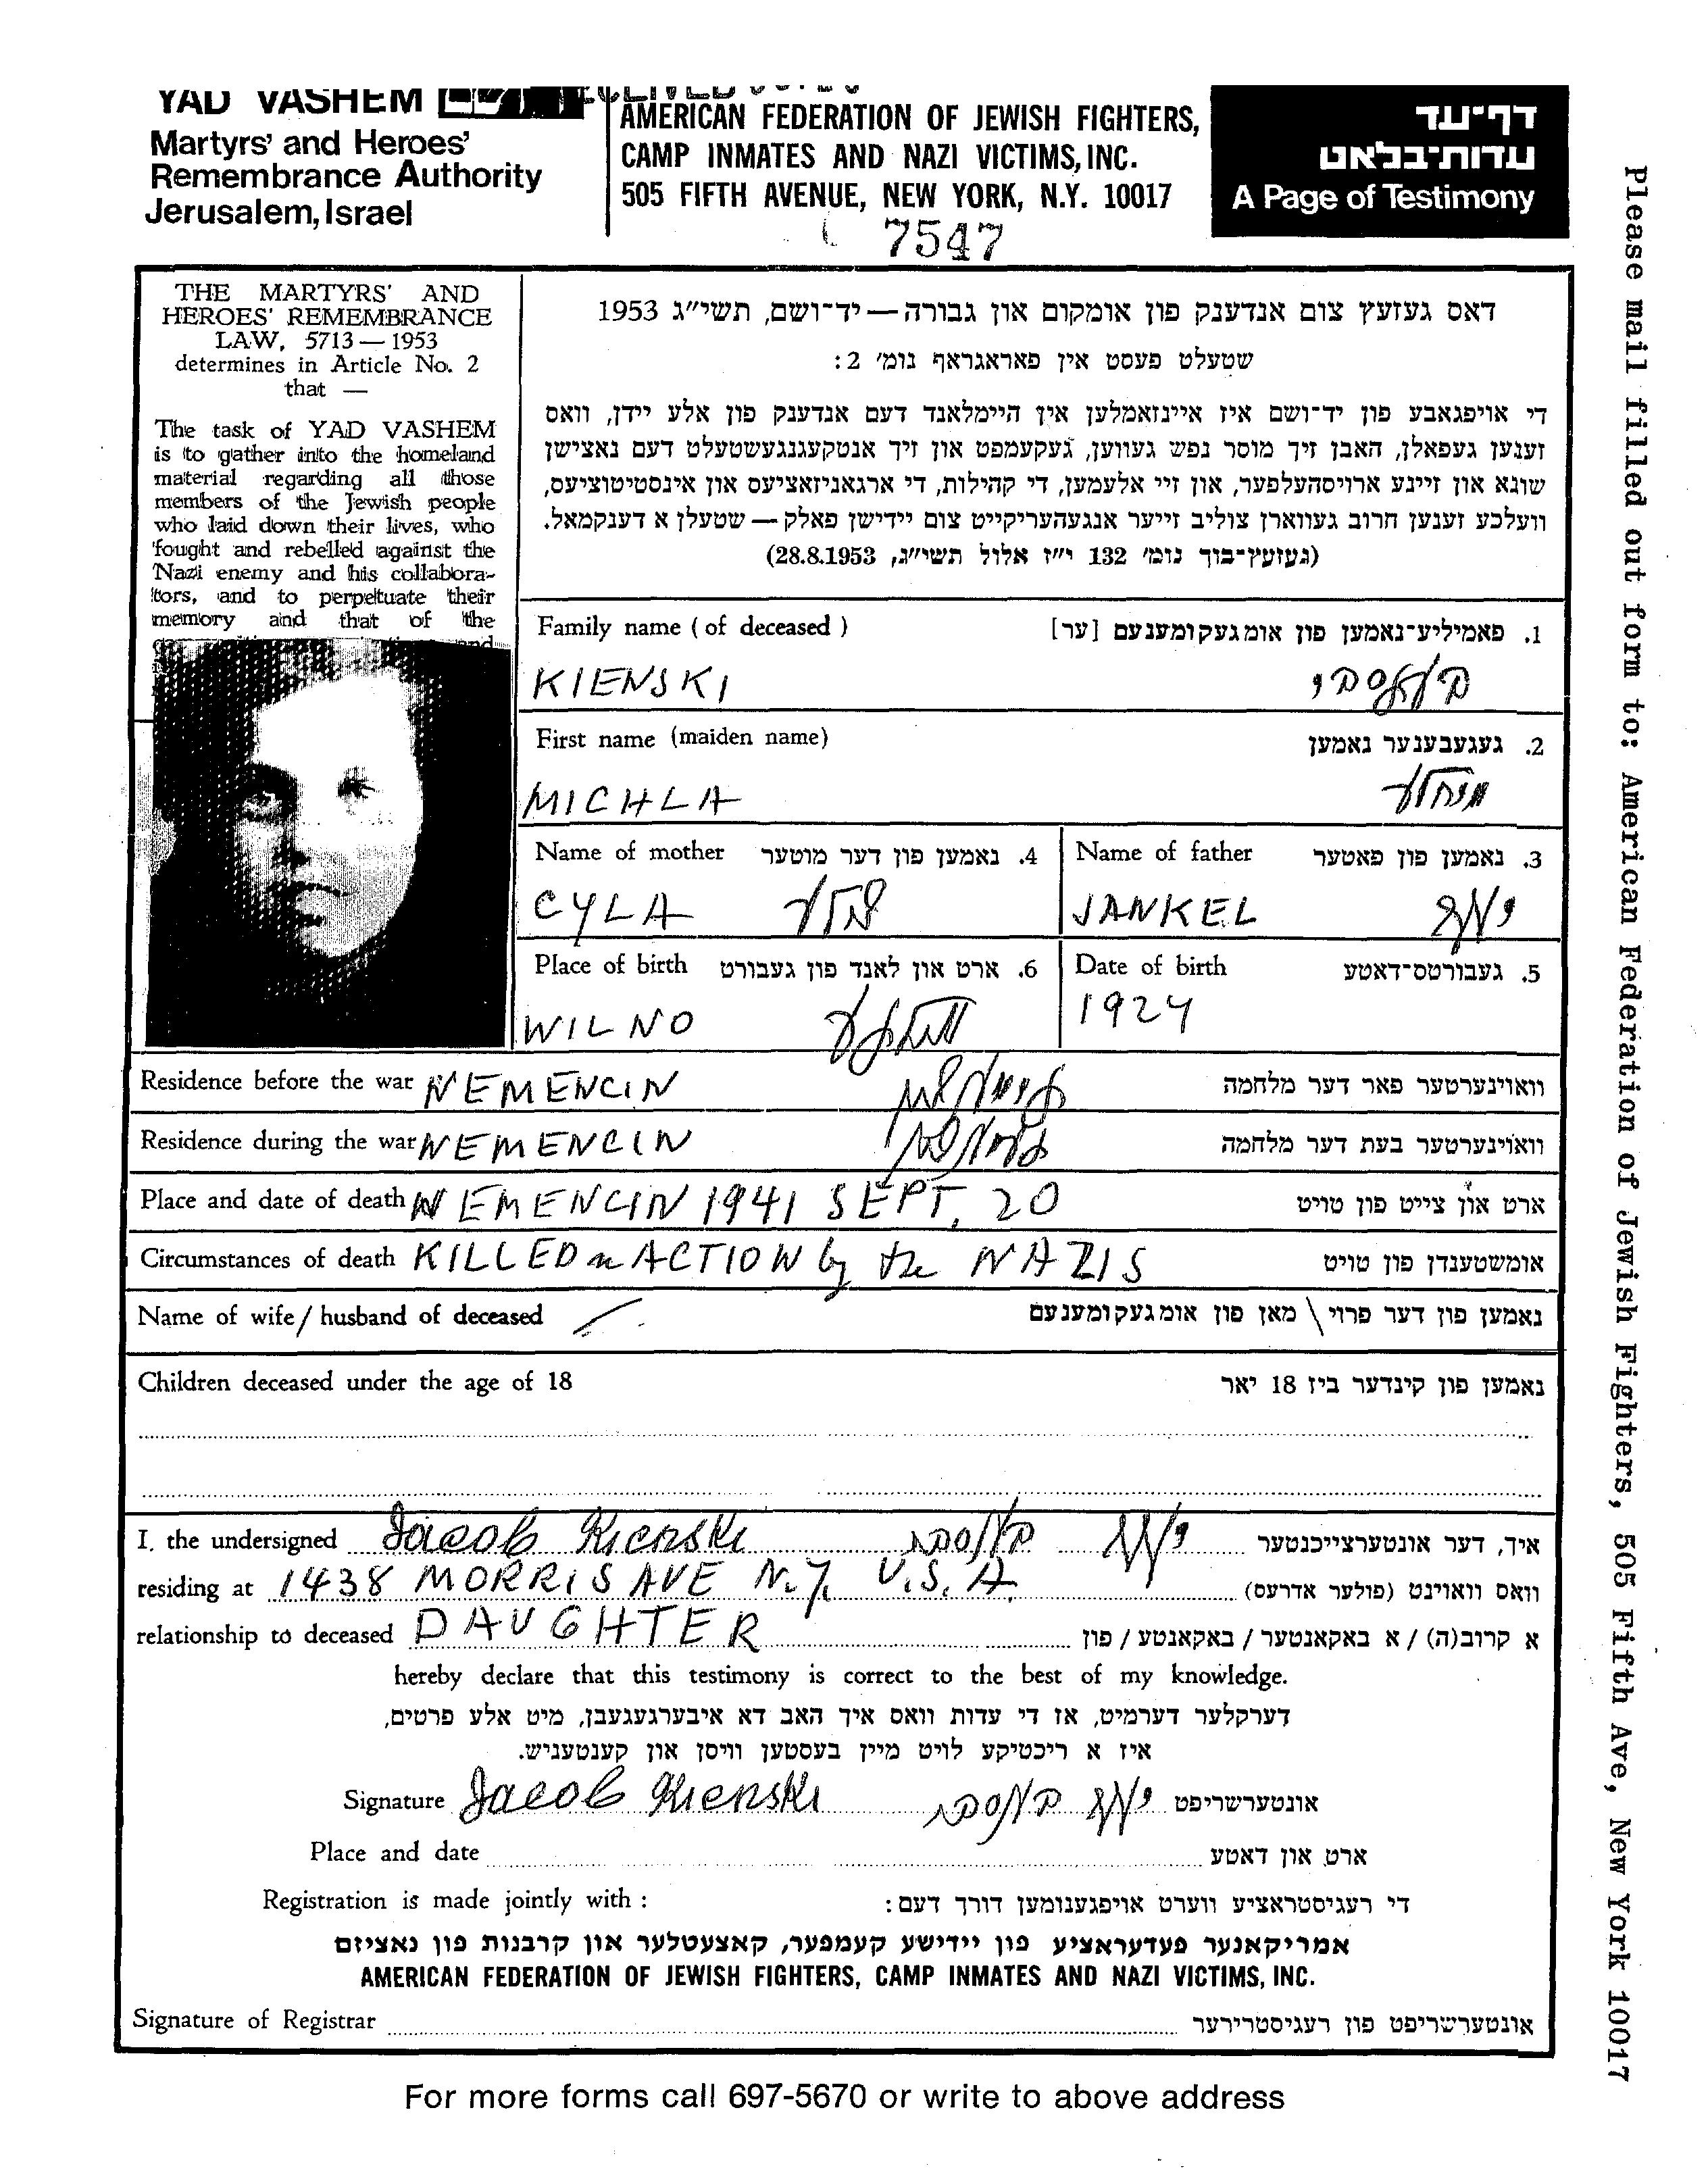 YAD VASHEM
Martyrs' and Heroes'
Remembrance Authority
Jerusalem, Israel
AMERICAN FEDERATION OF JEWISH FIGHTERS,
CAMP INMATES AND NAZI VICTIMS, INC.
505 FIFTH AVENUE, NEW YORK, N.Y. 10017
7547
דף־עד
עדות־בלאט
A Page of Testimony
THE MARTYRS' AND
HEROES' REMEMBRANCE
LAW, 5713 — 1953
determines in Article No. 2
that —
The task of YAD VASHEM
is to gather into the homeland
material regarding all those
members of the Jewish people
who laid down their lives, who
fought and rebelled against the
Nazi enemy and his collabora-
tors, and to perpetuate their
memory and that of the
דאס געזעץ צום אנדענק פון אומקום און גבורה — יד־ושם, תשי״ג 1953
שטעלט פעסט אין פאראגראף נומ׳ 2:
די אויפגאבע פון יד־ושם איז איינזאמלען אין היימלאנד דעם אנדענק פון אלע יידן, וואס
זענען געפאלן, האבן זיך מוסר נפש געווען, געקעמפט און זיך אנטקעגנגעשטעלט דעם נאצישן
שונא און זיינע ארויסהעלפער, און זיי אלעמען, די קהילות, די ארגאניזאציעס און אינסטיטוציעס,
וועלכע זענען חרוב געווארן צוליב זייער אנגעהעריקייט צום יידישן פאלק — שטעלן א דענקמאל.
(געזעץ־בוך נומ׳ 132 י״ז אלול תשי״ג, 28.8.1953)
Family name ( of deceased )
1. פאמיליע־נאמען פון אומגעקומענעם [ער]
KIENSKI
First name (maiden name)
2. געגעבענער נאמען
MICHLA
מיכלע
Name of mother
4. נאמען פון דער מוטער
Name of father
3. נאמען פון פאטער
CYLA
JANKEL
Place of birth
6. ארט און לאנד פון געבורט
Date of birth
5. געבורטס־דאטע
WILNO
1924
Residence before the war NEMENCIN
וואוינערטער פאר דער מלחמה
Residence during the war NEMENCIN
וואוינערטער בעת דער מלחמה
Place and date of death NEMENCIN 1941 SEPT, 20
ארט און צייט פון טויט
Circumstances of death KILLED in ACTION by the NAZIS
אומשטענדן פון טויט
Name of wife / husband of deceased
נאמען פון דער פרוי \ מאן פון אומגעקומענעם
Children deceased under the age of 18
נאמען פון קינדער ביז 18 יאר
I, the undersigned Jacob Kienski
איך, דער אונטערצייכנטער
residing at 1438 MORRIS AVE N.Y. U.S.A.
וואס וואוינט (פולער אדרעס)
relationship to deceased DAUGHTER
א קרוב(ה) / א באקאנטער / באקאנטע / פון
hereby declare that this testimony is correct to the best of my knowledge.
דערקלער דערמיט, אז די עדות וואס איך האב דא איבערגעגעבן, מיט אלע פרטים,
איז א ריכטיקע לויט מיין בעסטען וויסן און קענטעניש.
Signature Jacob Kienski
אונטערשריפט
Place and date
ארט און דאטע
Registration is made jointly with :
די רעגיסטראציע ווערט אויפגענומען דורך דעם:
אמריקאנער פעדעראציע פון יידישע קעמפער, קאצעטלער און קרבנות פון נאציזם
AMERICAN FEDERATION OF JEWISH FIGHTERS, CAMP INMATES AND NAZI VICTIMS, INC.
Signature of Registrar
אונטערשריפט פון רעגיסטרירער
For more forms call 697-5670 or write to above address
Please mail filled out form to: American Federation of Jewish Fighters, 505 Fifth Ave, New York 10017